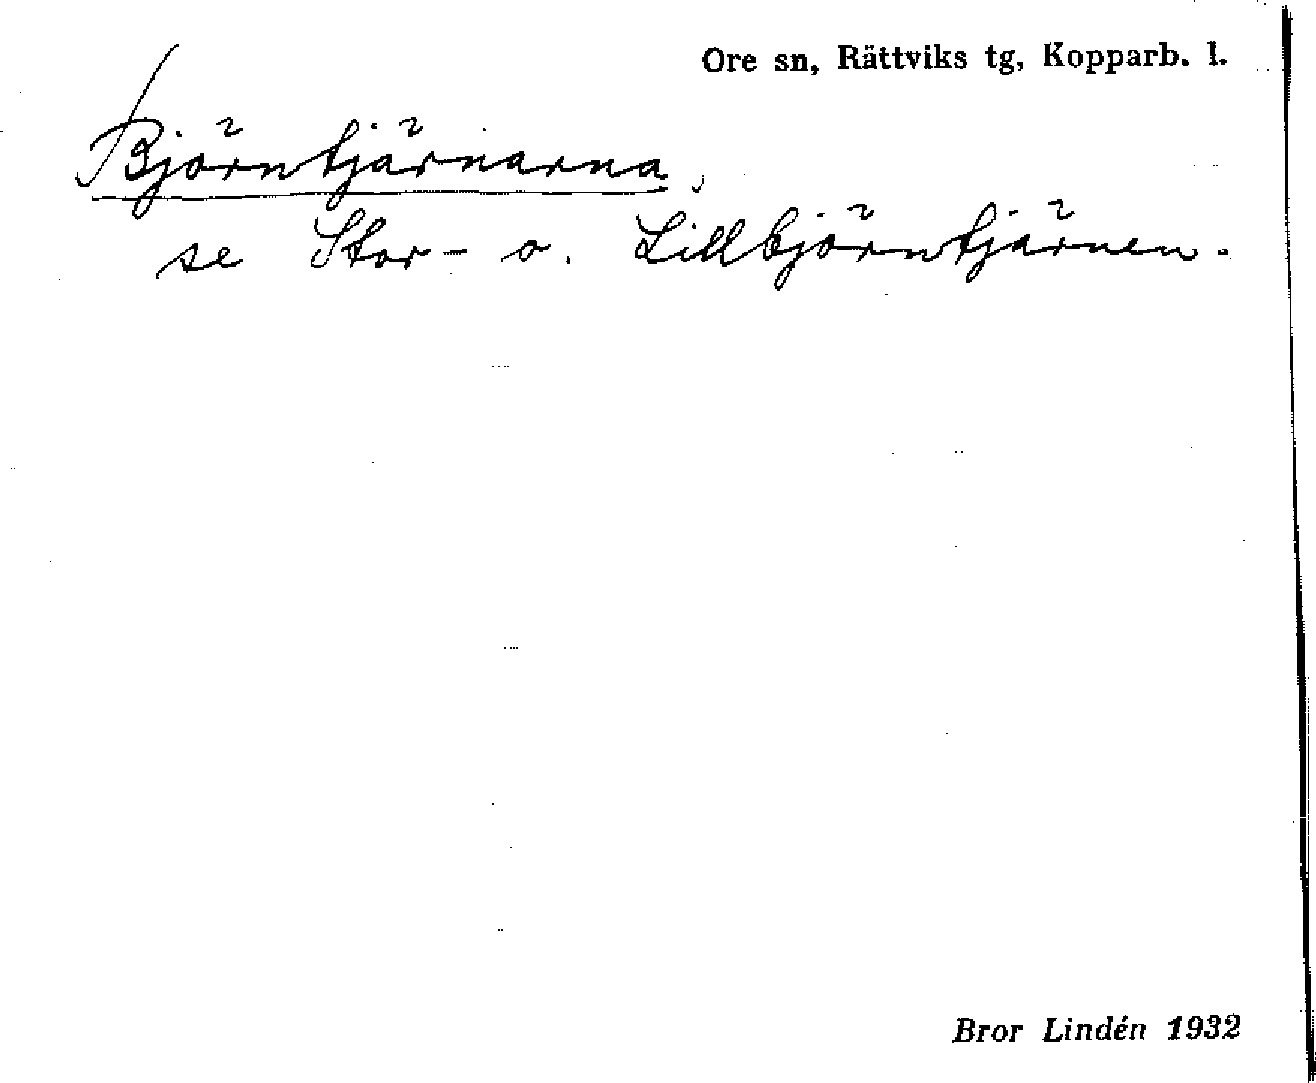 Ore sn, Rättviks tg, Kopparb. l.
Björntjärnarna,
se Stor- o. Lillbjörntjärnen.
Bror Lindén 1932